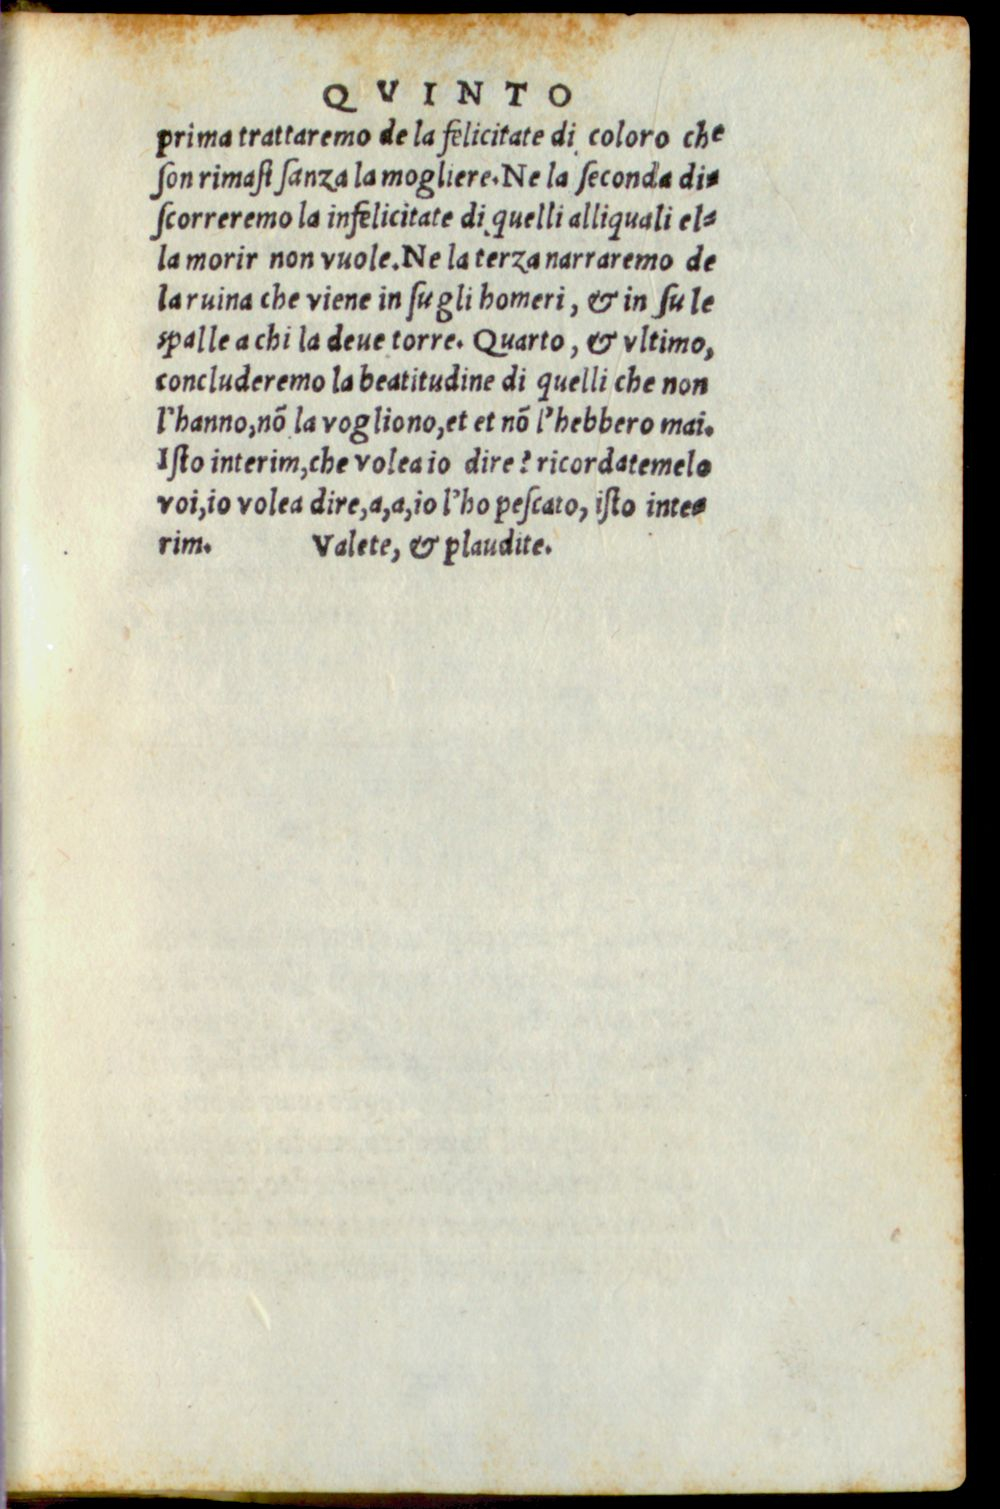 QVINTO
prima trattaremo de la felicitate di coloro che
ſon rimaſi ſanza la mogliere. Ne la ſeconda di-
ſcorreremo la infelicitate di quelli alliquali el-
la morir non vuole. Ne la terza narraremo de
la ruina che viene in ſu gli homeri, & in ſu le
spalle a chi la deue torre. Quarto, & vltimo,
concluderemo la beatitudine di quelli che non
l'hanno, nõ la vogliono, et et nõ l'hebbero mai.
Iſto interim, che volea io dire? ricordatemelo
voi, io volea dire, a, a, io l'ho peſcato, iſto inte-
rim. Valete, & plaudite.